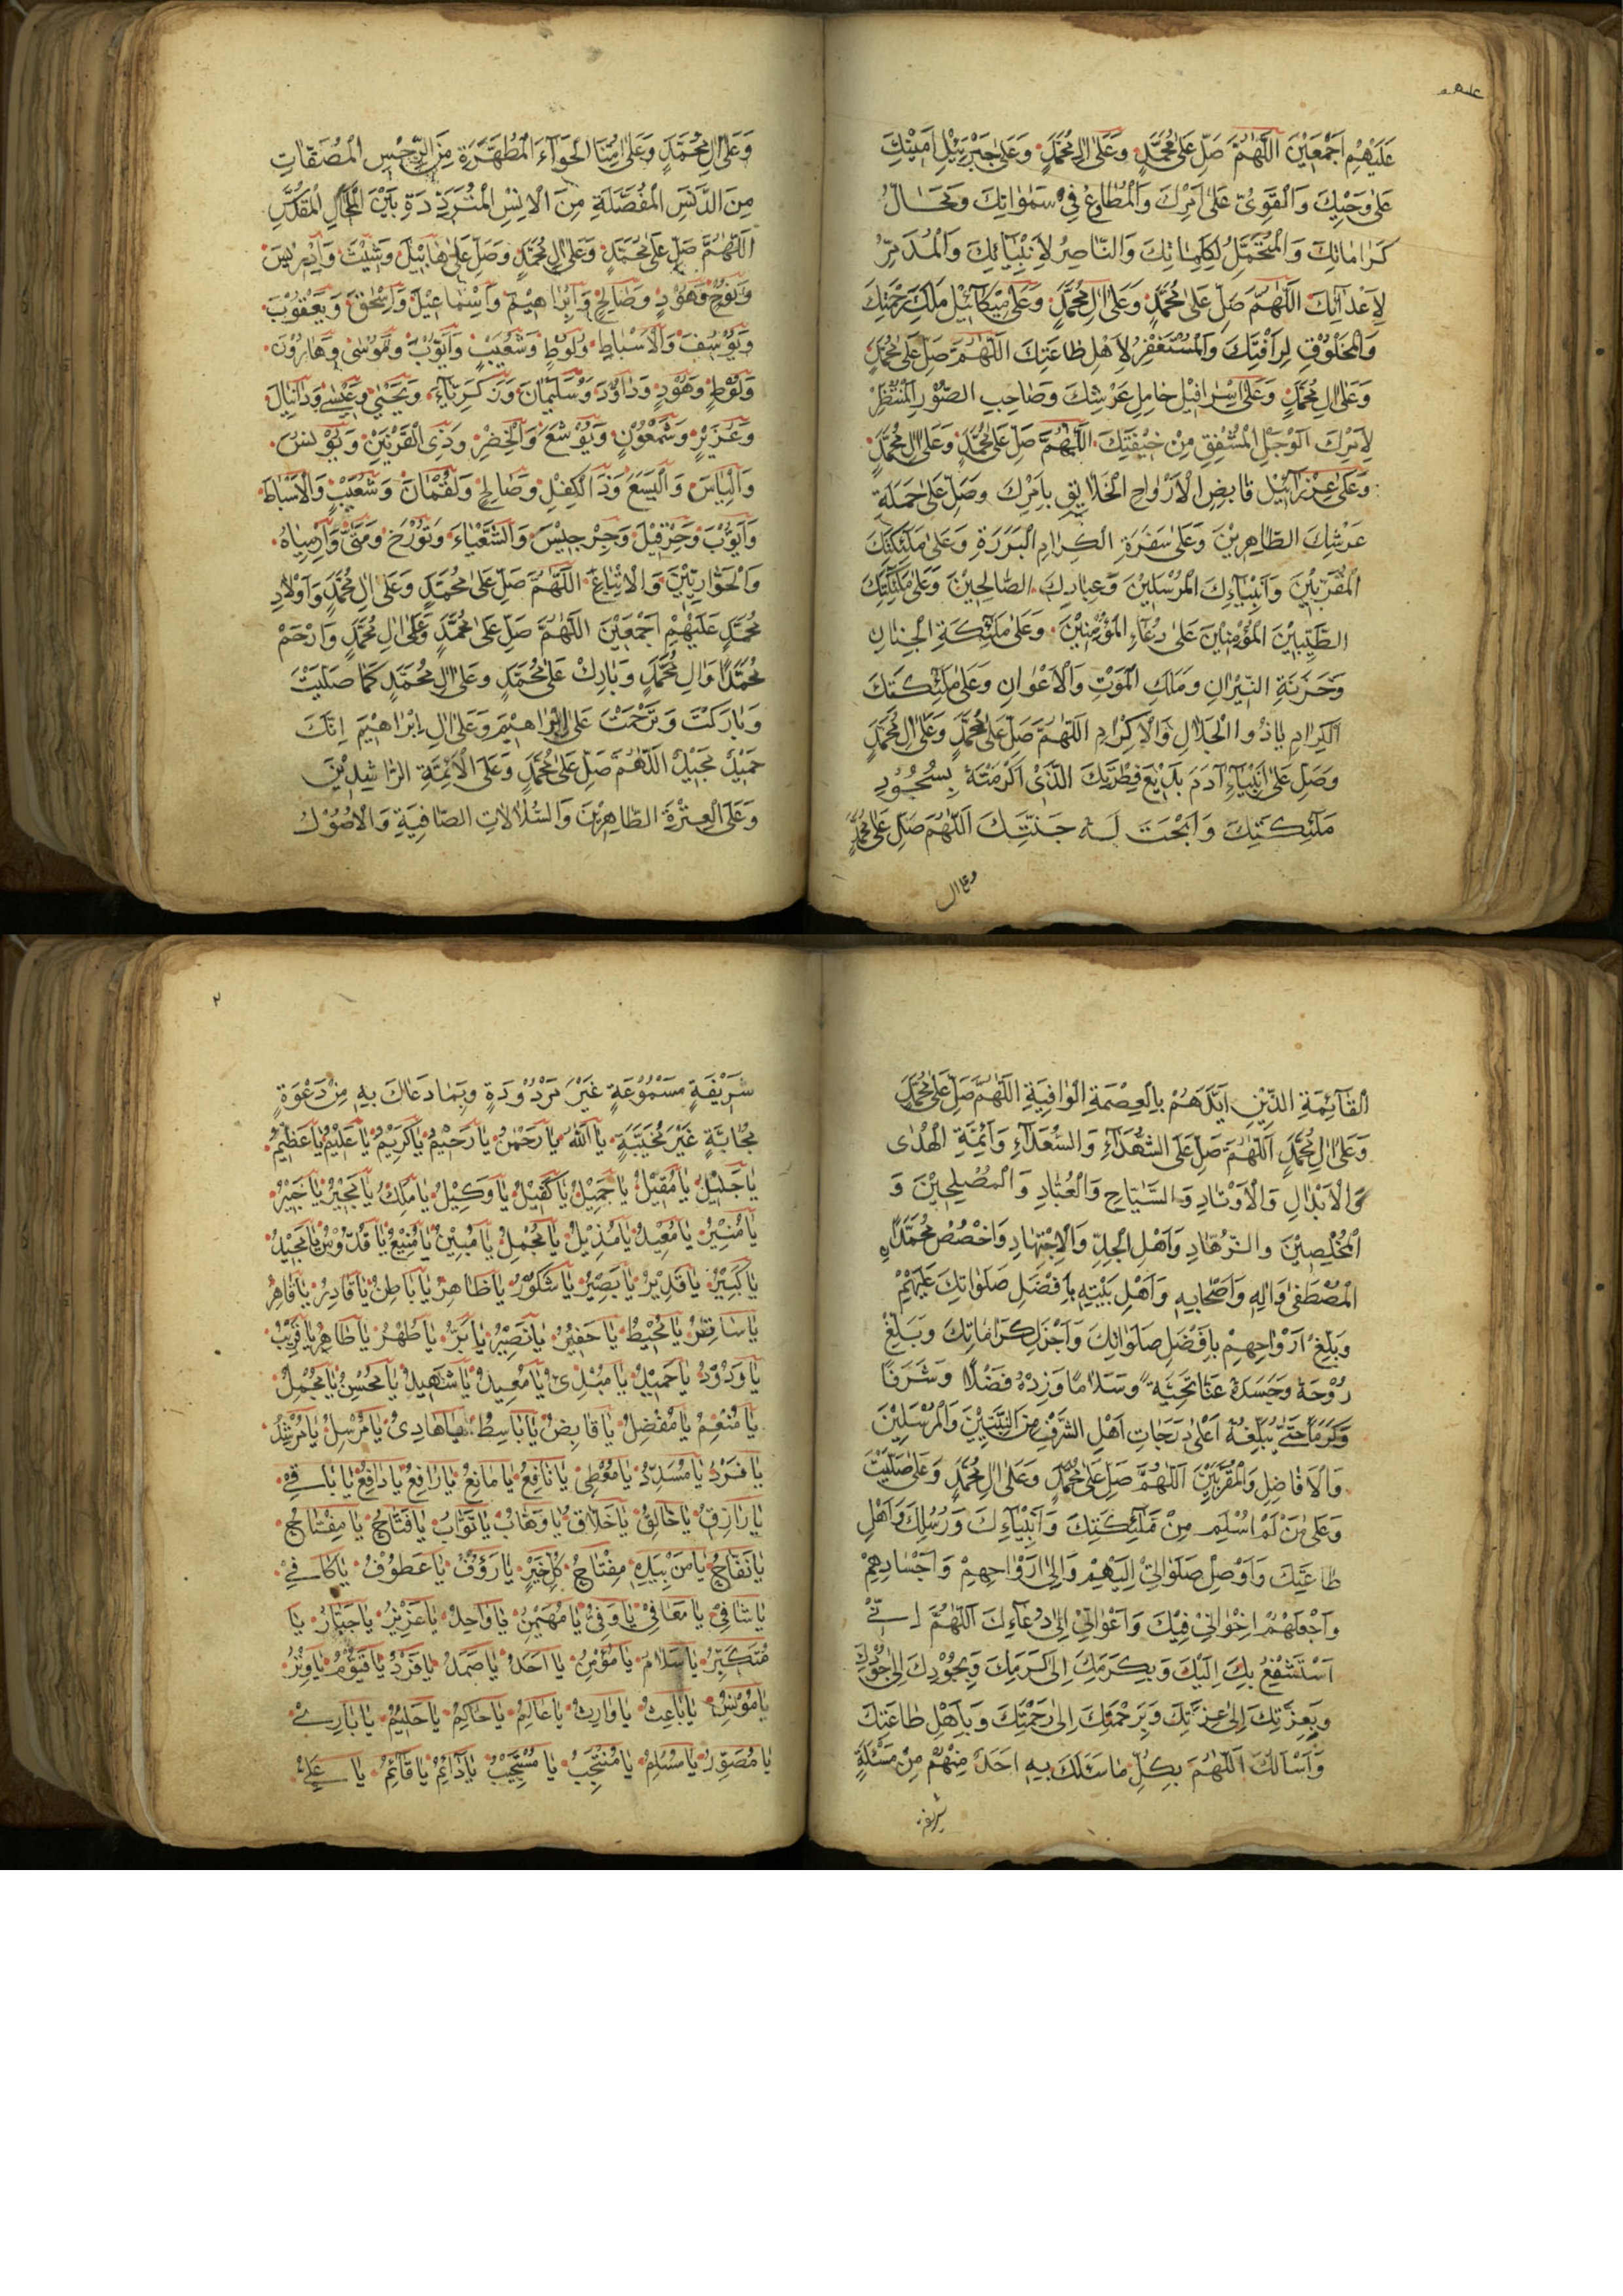 عَلَيْهِمْ اَجْمَعِيْنَ اَللّٰهُمَّ صَلِّ عَلٰى مُحَمَّدٍ وَعَلٰى اٰلِ مُحَمَّدٍ وَعَلٰى جَبْرَئِيْلَ اَمِيْنِكَ
عَلٰى وَحْيِكَ وَالْقَوِىِّ عَلٰى اَمْرِكَ وَالْمُطَاوِعُ فِيْ سَمٰوَاتِكَ وَمَحَالِّ
كَرَامَاتِكَ وَالْمُتَحَمِّلُ لِكَلِمَاتِكَ وَالنَّاصِرُ لِاَنْبِيَائِكَ وَالْمُدَمِّرُ
لِاَعْدَائِكَ اَللّٰهُمَّ صَلِّ عَلٰى مُحَمَّدٍ وَعَلٰى اٰلِ مُحَمَّدٍ وَعَلٰى مِيْكَائِيْلَ مَلَكِ رَحْمَتِكَ
وَالْمَخْلُوْقِ لِرَأْفَتِكَ وَالْمُسْتَغْفِرُ لِاَهْلِ طَاعَتِكَ اَللّٰهُمَّ صَلِّ عَلٰى مُحَمَّدٍ
وَعَلٰى اٰلِ مُحَمَّدٍ وَعَلٰى اِسْرَافِيْلَ حَامِلِ عَرْشِكَ وَصَاحِبِ الصُّوْرِ الْمُنْتَظِرْ
لِاَمْرِكَ الْوَجِلِ الْمُشْفِقِ مِنْ خِيْفَتِكَ اَللّٰهُمَّ صَلِّ عَلٰى مُحَمَّدٍ وَعَلٰى اٰلِ مُحَمَّدٍ
وَعَلٰى عِزْرَائِيْلَ قَابِضِ الْاَرْوَاحِ الْخَلَايِقِ بِاَمْرِكَ وَصَلِّ عَلٰى حَمَلَةِ
عَرْشِكَ الطَّاهِرِيْنَ وَعَلٰى سَفَرَةِ الْكِرَامِ الْبَرَرَةِ وَعَلٰى مَلٰئِكَتِكَ
الْمُقَرَّبِيْنَ وَاَنْبِيَاءِكَ الْمُرْسَلِيْنَ وَعِبَادِكَ الصَّالِحِيْنَ وَعَلٰى مَلٰئِكَتِكَ
الطَّيِّبِيْنَ الْمُؤْمِنِيْنَ عَلٰى دُعَاءِ الْمُؤْمِنِيْنَ وَعَلٰى مَلٰئِكَةِ الْجِنَانِ
وَخَزَنَةِ النِّيْرَانِ وَمَلَكِ الْمَوْتِ وَالْاَعْوَانِ وَعَلٰى مَلٰئِكَتِكَ
الْكِرَامِ يَاذُوا الْجَلَالِ وَالْاِكْرَامِ اَللّٰهُمَّ صَلِّ عَلٰى مُحَمَّدٍ وَعَلٰى اٰلِ مُحَمَّدٍ
وَصَلِّ عَلٰى اَبِيْنَا اٰدَمَ بَدِيْعِ فِطْرَتِكَ الَّذِىْ اَكْرَمْتَهٗ بِسُجُوْدِ
مَلٰئِكَتِكَ وَاَبَحْتَ لَهٗ جَنَّتِكَ اَللّٰهُمَّ صَلِّ عَلٰى مُحَمَّدٍ
وعلى ال
وَعَلٰى اٰلِ مُحَمَّدٍ وَعَلٰى اُمِّنَا الْحَوَّاءِ الْمُطَهَّرَةِ مِنَ الرِّجْسِ الْمُصَفَّاتِ
مِنَ الدَّنَسِ الْمُفَضَّلَةِ مِنَ الْاِنْسِ الْمُتَرَدِّدَةِ بَيْنَ الْمَحَالِّ الْمُقَدَّسِ
اَللّٰهُمَّ صَلِّ عَلٰى مُحَمَّدٍ وَعَلٰى اٰلِ مُحَمَّدٍ وَصَلِّ عَلٰى هَابِيْلَ وَشِيْثَ وَاِدْرِيْسَ
وَنُوْحٍ وَهُوْدٍ وَصَالِحٍ وَاِبْرَاهِيْمَ وَاِسْمَاعِيْلَ وَاِسْحٰقَ وَيَعْقُوْبَ
وَيُوْسُفَ وَالْاَسْبَاطِ وَلُوْطٍ وَشُعَيْبٍ وَاَيُّوْبَ وَمُوْسٰى وَهَارُوْنَ
وَلُوْطٍ وَهُوْدٍ وَدَاوُدَ وَسُلَيْمَانَ وَزَكَرِيَّاءَ وَيَحْيٰى وَعِيْسٰى وَدَانِيَالَ
وَعُزَيْرٍ وَشَمْعُوْنٍ وَيُوْشَعَ وَالْخِضْرِ وَذِى الْقَرْنَيْنِ وَيُوْنُسَ
وَاِلْيَاسَ وَالْيَسَعَ وَذَ الْكِفْلِ وَصَالِحٍ وَلُقْمَانَ وَشُعَيْبٍ وَالْاَسْبَاطَ
وَاَيُّوْبَ وَحِزْقِيْلَ وَجِرْجِيْسَ وَالشَّعْيَاءَ وَتُوْرَخَ وَمَتّٰى وَاَرْمِيَاهُ
وَالْحَوَارِيِّيْنَ وَالْاَتْبَاعَ اَللّٰهُمَّ صَلِّ عَلٰى مُحَمَّدٍ وَعَلٰى اٰلِ مُحَمَّدٍ وَاَوْلَادِ
مُحَمَّدٍ عَلَيْهِمْ اَجْمَعِيْنَ اَللّٰهُمَّ صَلِّ عَلٰى مُحَمَّدٍ وَعَلٰى اٰلِ مُحَمَّدٍ وَارْحَمْ
مُحَمَّدًا وَاٰلِ مُحَمَّدٍ وَبَارِكْ عَلٰى مُحَمَّدٍ وَعَلٰى اٰلِ مُحَمَّدٍ كَمَا صَلَّيْتَ
وَبَارَكْتَ وَتَرَحَّمْتَ عَلٰى اِبْرَاهِيْمَ وَعَلٰى اٰلِ اِبْرَاهِيْمَ اِنَّكَ
حَمِيْدٌ مَجِيْدٌ اَللّٰهُمَّ صَلِّ عَلٰى مُحَمَّدٍ وَعَلَى الْاَئِمَّةِ الرَّاشِدِيْنَ
وَعَلَى الْعِتْرَةِ الطَّاهِرِيْنَ وَالسُّلَالَاتِ الصَّافِيَةِ وَالْاُصُوْلِ
الْقَآئِمَةِ الَّذِيْنَ اَيَّدَهُمْ بِالْعِصْمَةِ الْوَافِيَةِ اَللّٰهُمَّ صَلِّ عَلٰى مُحَمَّدٍ
وَعَلٰى اٰلِ مُحَمَّدٍ اَللّٰهُمَّ صَلِّ عَلَى الشُّهَدَآءِ وَالسُّعَدَآءِ وَاَئِمَّةِ الْهُدٰى
وَالْاَبْدَالِ وَالْاَوْتَادِ وَالسَّيَّاحِ وَالْعُبَّادِ وَالْمُصْلِحِيْنَ وَ
الْمُخْلِصِيْنَ وَالزُّهَّادِ وَاَهْلِ الْجِدِّ وَالْاِجْتِهَادِ وَاخْصُصْ مُحَمَّدًا
الْمُصْطَفٰى وَاٰلِهٖ وَاَصْحَابِهٖ وَاَهْلِ بَيْتِهٖ بِاَفْضَلِ صَلَوَاتِكَ عَلَيْهِمْ
وَبَلِّغْ اَرْوَاحِهِمْ بِاَفْضَلِ صَلَوَاتِكَ وَاَجْزَلِ كَرَامَاتِكَ وَبَلِّغْ
رُوْحَهٗ وَجَسَدَهٗ عَنَّا تَحِيَّةً وَسَلَامًا وَزِدْهُ فَضْلًا وَشَرَفًا
وَكَرَمًا حَتّٰى يُبَلِّغَهٗ اَعْلٰى دَرَجَاتِ اَهْلِ الشَّرَفِ مِنَ النَّبِيِّيْنَ وَالْمُرْسَلِيْنَ
وَالْاَفَاضِلِ وَالْمُقَرَّبِيْنَ اَللّٰهُمَّ صَلِّ عَلٰى مُحَمَّدٍ وَعَلٰى اٰلِ مُحَمَّدٍ وَعَلٰى صَلَّيْتَ
وَعَلٰى مَنْ لَمْ اُسَلِّمْ مِنْ مَلٰئِكَتِكَ وَاَنْبِيَآءِكَ وَرُسُلِكَ وَاَهْلِ
طَاعَتِكَ وَاَوْصِلْ صَلَوَاتِىْ اِلَيْهِمْ وَاِلٰى اَرْوَاحِهِمْ وَاَجْسَادِهِمْ
وَاجْعَلْهُمْ اِخْوَانِىْ فِيْكَ وَاَعْوَانِىْ اِلٰى دُعَآءِكَ اَللّٰهُمَّ اِنِّىْ
اَسْتَشْفِعُ بِكَ اِلَيْكَ وَبِكَرَمِكَ اِلٰى كَرَمِكَ وَبِجُوْدِكَ اِلٰى جُوْدِكَ
وَبِعِزَّتِكَ اِلٰى عِزَّتِكَ وَبِرَحْمَتِكَ اِلٰى رَحْمَتِكَ وَبِاَهْلِ طَاعَتِكَ
وَاَسْأَلُكَ اَللّٰهُمَّ بِكُلِّ مَا سَئَلَكَ بِهٖ اَحَدٌ مِنْهُمْ مِنْ مَسْئَلَةٍ
شريفة
٢
شَرِيْفَةٍ مَسْمُوْعَةٍ غَيْرَ مَرْدُوْدَةٍ وَبِمَا دَعَاكَ بِهٖ مِنْ دَعْوَةٍ
مُجَابَةٍ غَيْرَ مُخَيَّبَةٍ يَا اَللّٰهُ يَا رَحْمٰنُ يَا رَحِيْمُ يَا كَرِيْمُ يَا عَلِيْمُ يَا عَظِيْمُ
يَا جَلِيْلُ يَا مُقِيْلُ يَا جَمِيْلُ يَا كَفِيْلُ يَا وَكِيْلُ يَا مَلِكُ يَا مُجِيْرُ يَا خَبِيْرُ
يَا مُنِيْرُ يَا مُعِيْدُ يَا مُذِيْلُ يَا مُجْمِلُ يَا مُبِيْنُ يَا مَنِيْعُ يَا قُدُّوْسُ يَا مَجِيْدُ
يَا كَبِيْرُ يَا قَدِيْرُ يَا بَصِيْرُ يَا شَكُوْرُ يَا ظَاهِرُ يَا بَاطِنُ يَا قَادِرُ يَا قَاهِرُ
يَا سَاتِرُ يَا مُحِيْطُ يَا حَفِيْزُ يَا نَصِيْرُ يَا بَرُّ يَا طُهْرُ يَا طَاهِرُ يَا قَرِيْبُ
يَا وَدُوْدُ يَا حَمِيْدُ يَا مُبْدِئُ يَا مُعِيْدُ يَا شَهِيْدُ يَا مُحْسِنُ يَا مُجْمِلُ
يَا مُنْعِمُ يَا مُفْضِلُ يَا قَابِضُ يَا بَاسِطُ يَا هَادِىُ يَا مُرْسِلُ يَا مُرْشِدُ
يَا فَرْدُ يَا مُسَدِّدُ يَا مُعْطِىُ يَا نَافِعُ يَا مَانِعُ يَا رَافِعُ يَا دَافِعُ يَا بَاقِىْ
يَا رَازِقُ يَا خَالِقُ يَا خَلَّاقُ يَا وَهَّابُ يَا تَوَّابُ يَا فَتَّاحُ يَا مِفْتَاحُ
يَا نَفَّاحُ يَا مَنْ بِيَدِهٖ مِفْتَاحُ كُلِّ خَيْرٍ يَا رَؤُفُ يَا عَطُوْفُ يَا كَافِىْ
يَا شَافِىْ يَا مُعَافِىْ يَا وَفِىُّ يَا مُهَيْمِنُ يَا وَاحِدُ يَا عَزِيْزُ يَا جَبَّارُ يَا
مُتَكَبِّرُ يَا سَلَامُ يَا مُؤْمِنُ يَا اَحَدُ يَا صَمَدُ يَا فَرْدُ يَا قَيُّوْمُ يَا وِتْرُ
يَا مُوْنِسُ يَا بَاعِثُ يَا وَارِثُ يَا عَالِمُ يَا حَاكِمُ يَا حَلِيْمُ يَا بَارِئُ
يَا مُصَوِّرُ يَا مُسَلِّمُ يَا مُنْتَجِبُ يَا مُسْتَجِيْبُ يَا دَآئِمُ يَا قَآئِمُ يَا عَلِىُّ